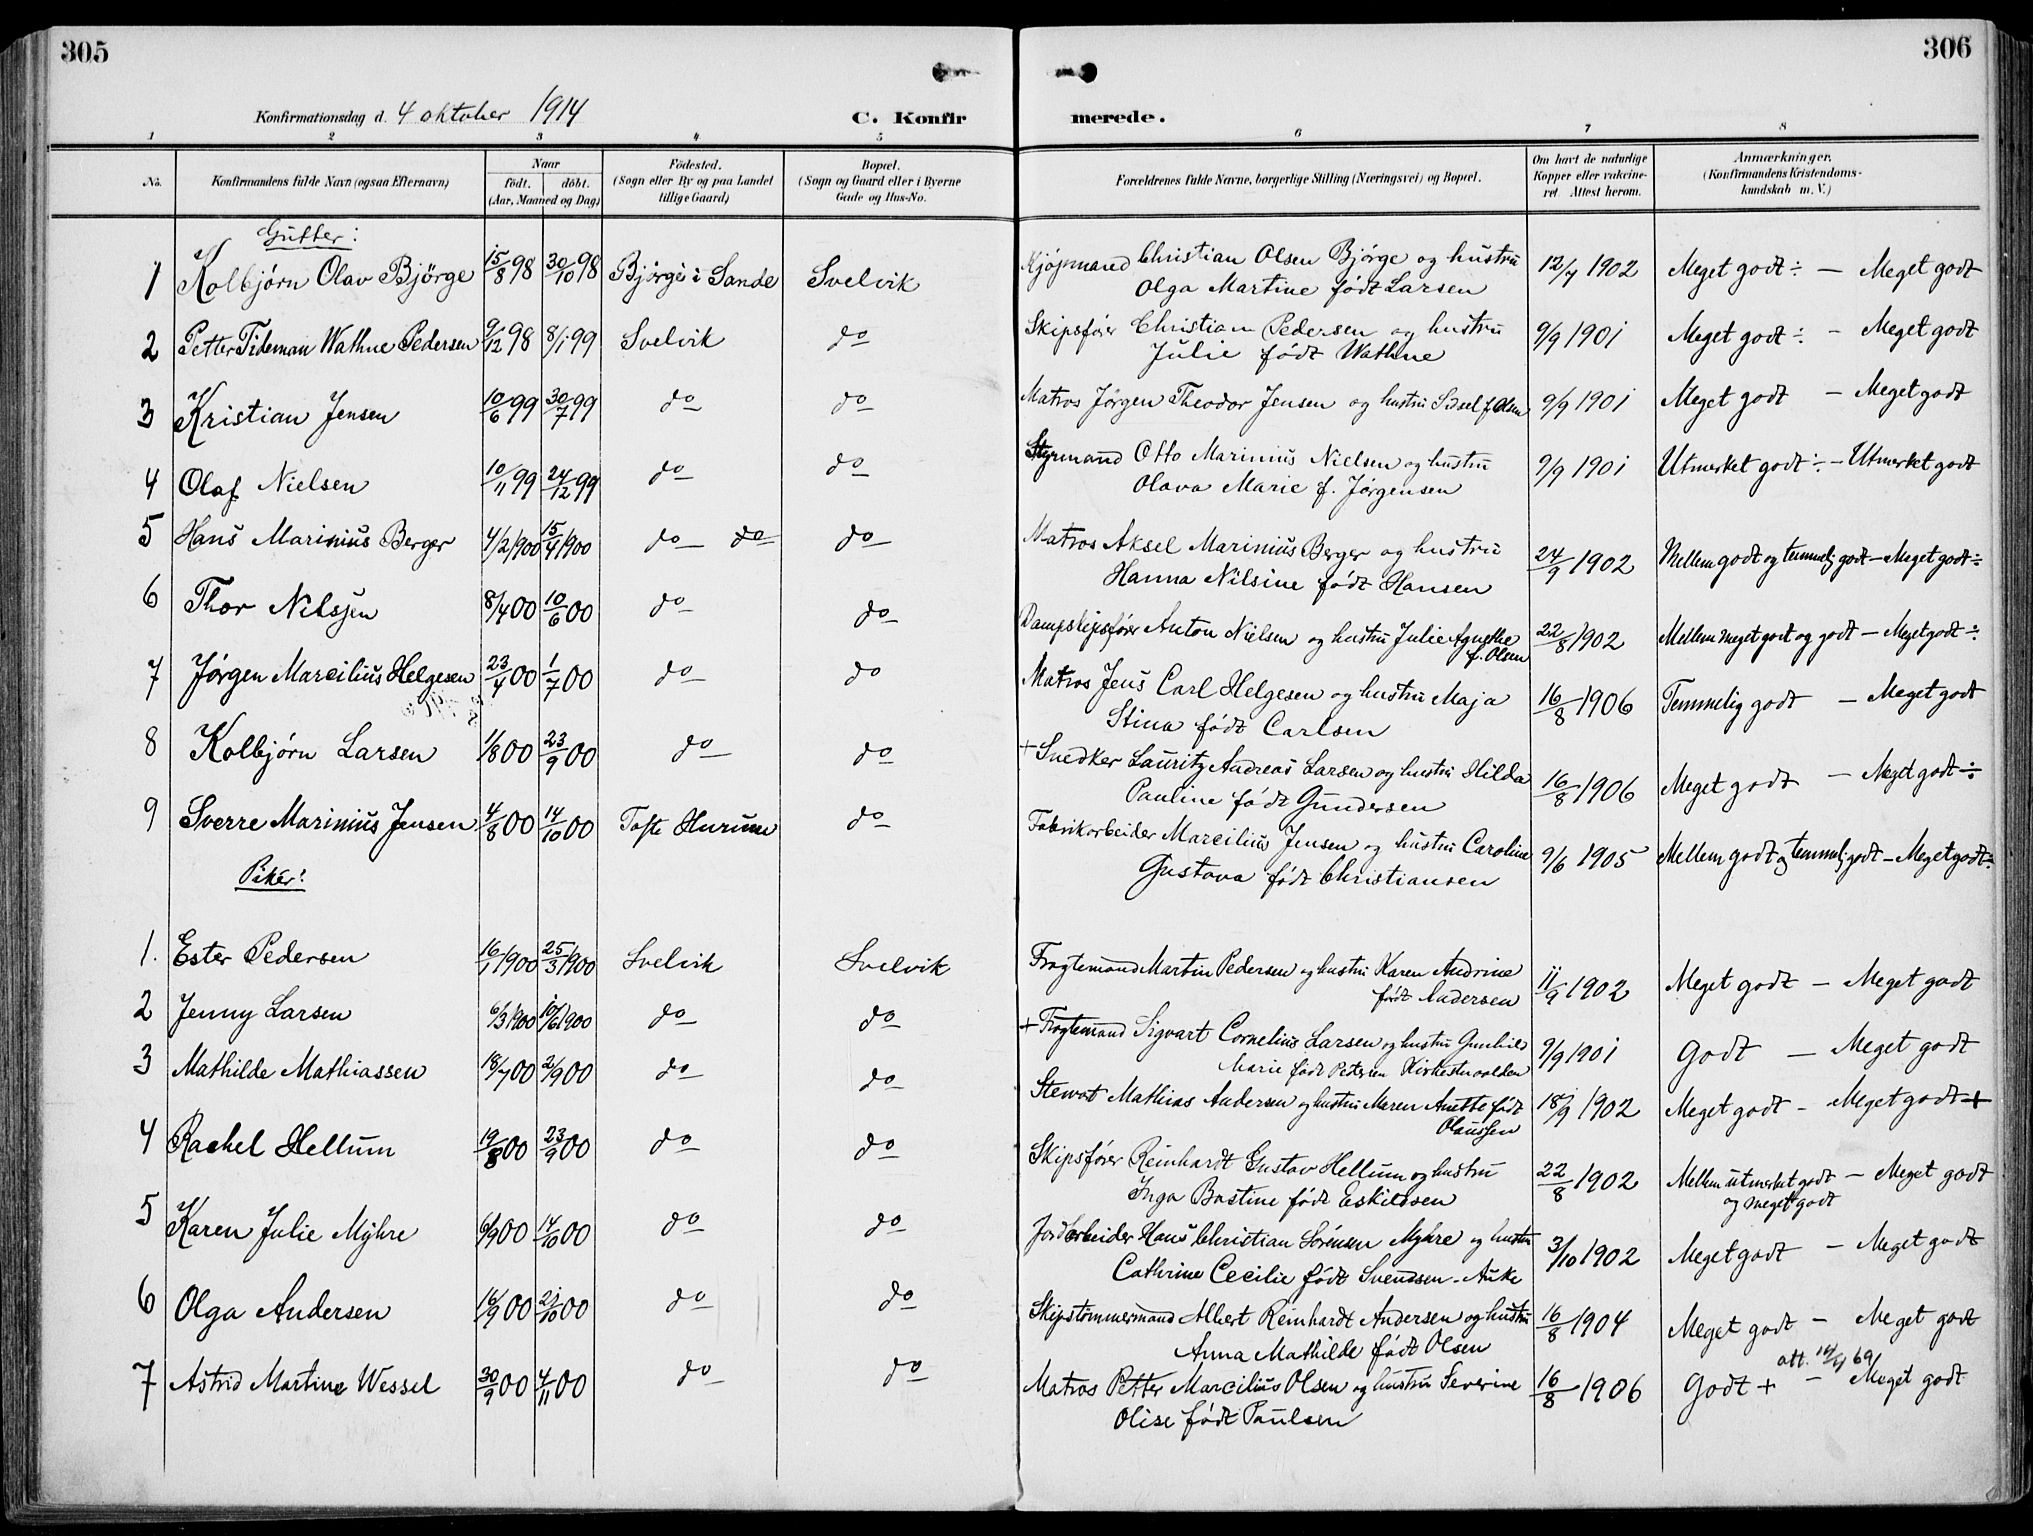 305
306
Konfirmationsdag d. 4 oktober 1914
C. Konfir
merede.
1 2 3 4 5 6 7 8
No.
Konfirmandens fulde Navn (ogsaa Efternavn)
Naar
födt. döbt.
(Aar, Maaned og Dag)
Födested.
(Sogn eller By og paa Landet
tillige Gaard)
Bopæl.
(Sogn og Gaard eller i Byerne
Gade og Hus-No.
Forældrenes fulde Navne, borgerlige Stilling (Næringsvei) og Bopæl.
Om havt de naturlige
Kopper eller vakcine-
ret Attest herom.
Anmærkninger.
(Konfirmandens Kristendoms-
kundskab m. V.)
Gutter:
1 Kolbjørn Olav Bjørge 15/8 98 30/10 98 Bjørge i Sande Svelvik Kjøpmand Christian Olsen Bjørge og hustru 12/7 1902 Meget godt ÷ — Meget godt
Olga Martine født Larsen
2 Petter Tideman Wathne Pedersen 9/12 98 8/1 99 Svelvik do Skipsfører Christian Pedersen og hustru 9/9 1901 Meget godt ÷ — Meget godt
Julie født Wathne
3 Kristian Jensen 10/6 99 30/7 99 do do Matros Jørgen Theodor Jensen og hustru Sidsel f. Olsen 9/9 1901 Meget godt — Meget godt
4 Olaf Nielsen 10/11 99 24/12 99 do do Styrmand Otto Marinius Nielsen og hustru 9/9 1901 Utmerket godt ÷ — Utmerket godt
Olava Marie f. Jørgensen
5 Hans Marinius Berger 4/2 1900 15/4 1900 do do do Matros Aksel Marinius Berger og hustru 24/9 1902 Mellem godt og temmelig godt — Meget godt ÷
Hanna Nilsine født Hansen
6 Thor Nilsen 8/4 00 10/6 00 do do Dampskipsfører Anton Nielsen og hustru Julie Agnethe 22/8 1902 Mellem meget godt og godt — Meget godt ÷
f. Olsen
7 Jørgen Marcilius Helgesen 23/4 00 1/7 00 do do Matros Jens Carl Helgesen og hustru Maja 16/8 1906 Temmelig godt — Meget godt
Stina født Carlsen
8 Kolbjørn Larsen 1/8 00 23/9 00 do do + Snedker Lauritz Andreas Larsen og hustru Hilda 16/8 1906 Meget godt — Meget godt ÷
Pauline født Gundersen
9 Sverre Marinius Jensen 4/8 00 14/10 00 Tofte Hurum do Fabrikarbeider Marcilius Jensen og hustru Caroline 9/6 1905 Mellem godt og temmelig godt — Meget godt ÷
Gustava født Christiansen
Piker:
1. Ester Pedersen 16/1 1900 25/3 1900 Svelvik Svelvik Fragtemand Martin Pedersen og hustru Karen Andrine 11/9 1902 Meget godt — Meget godt
født Andersen
2 Jenny Larsen 6/3 1900 10/6 1900 do do + Fragtemand Sigvart Cornelius Larsen og hustru Gunhild 9/9 1901 Godt — Meget godt
Marie født Petersen
3 Mathilde Mathiassen 18/7 00 2/9 00 do do Stewart Mathias Andersen og hustru Maren Anette født 18/9 1902 Meget godt — Meget godt +
Olaussen
4 Rachel Hellum 19/8 00 23/9 00 do do Skipsfører Reinhardt Gustav Hellum og hustru 22/8 1902 Mellem utmerket godt — Meget godt
Inga Bastine født Eskildsen og meget godt
5 Karen Julie Myhre 6/9 00 14/10 00 do do Jordarbeider Hans Christian Sörensen Myhre og hustru 3/10 1902 Meget godt — Meget godt
Cathrine Cecilie født Svendsen
6 Olga Andersen 16/9 00 21/10 00 do do Skipstömmermand Albert Reinhardt Andersen og hustru 16/8 1904 Meget godt — Meget godt
Anna Mathilde født Olsen
att. 14/4 69
7 Astrid Martine Wessel 30/9 00 4/11 00 do do Matros Petter Marcilius Olsen og hustru Severine 16/8 1906 Godt + — Meget godt
Olise født Paulsen